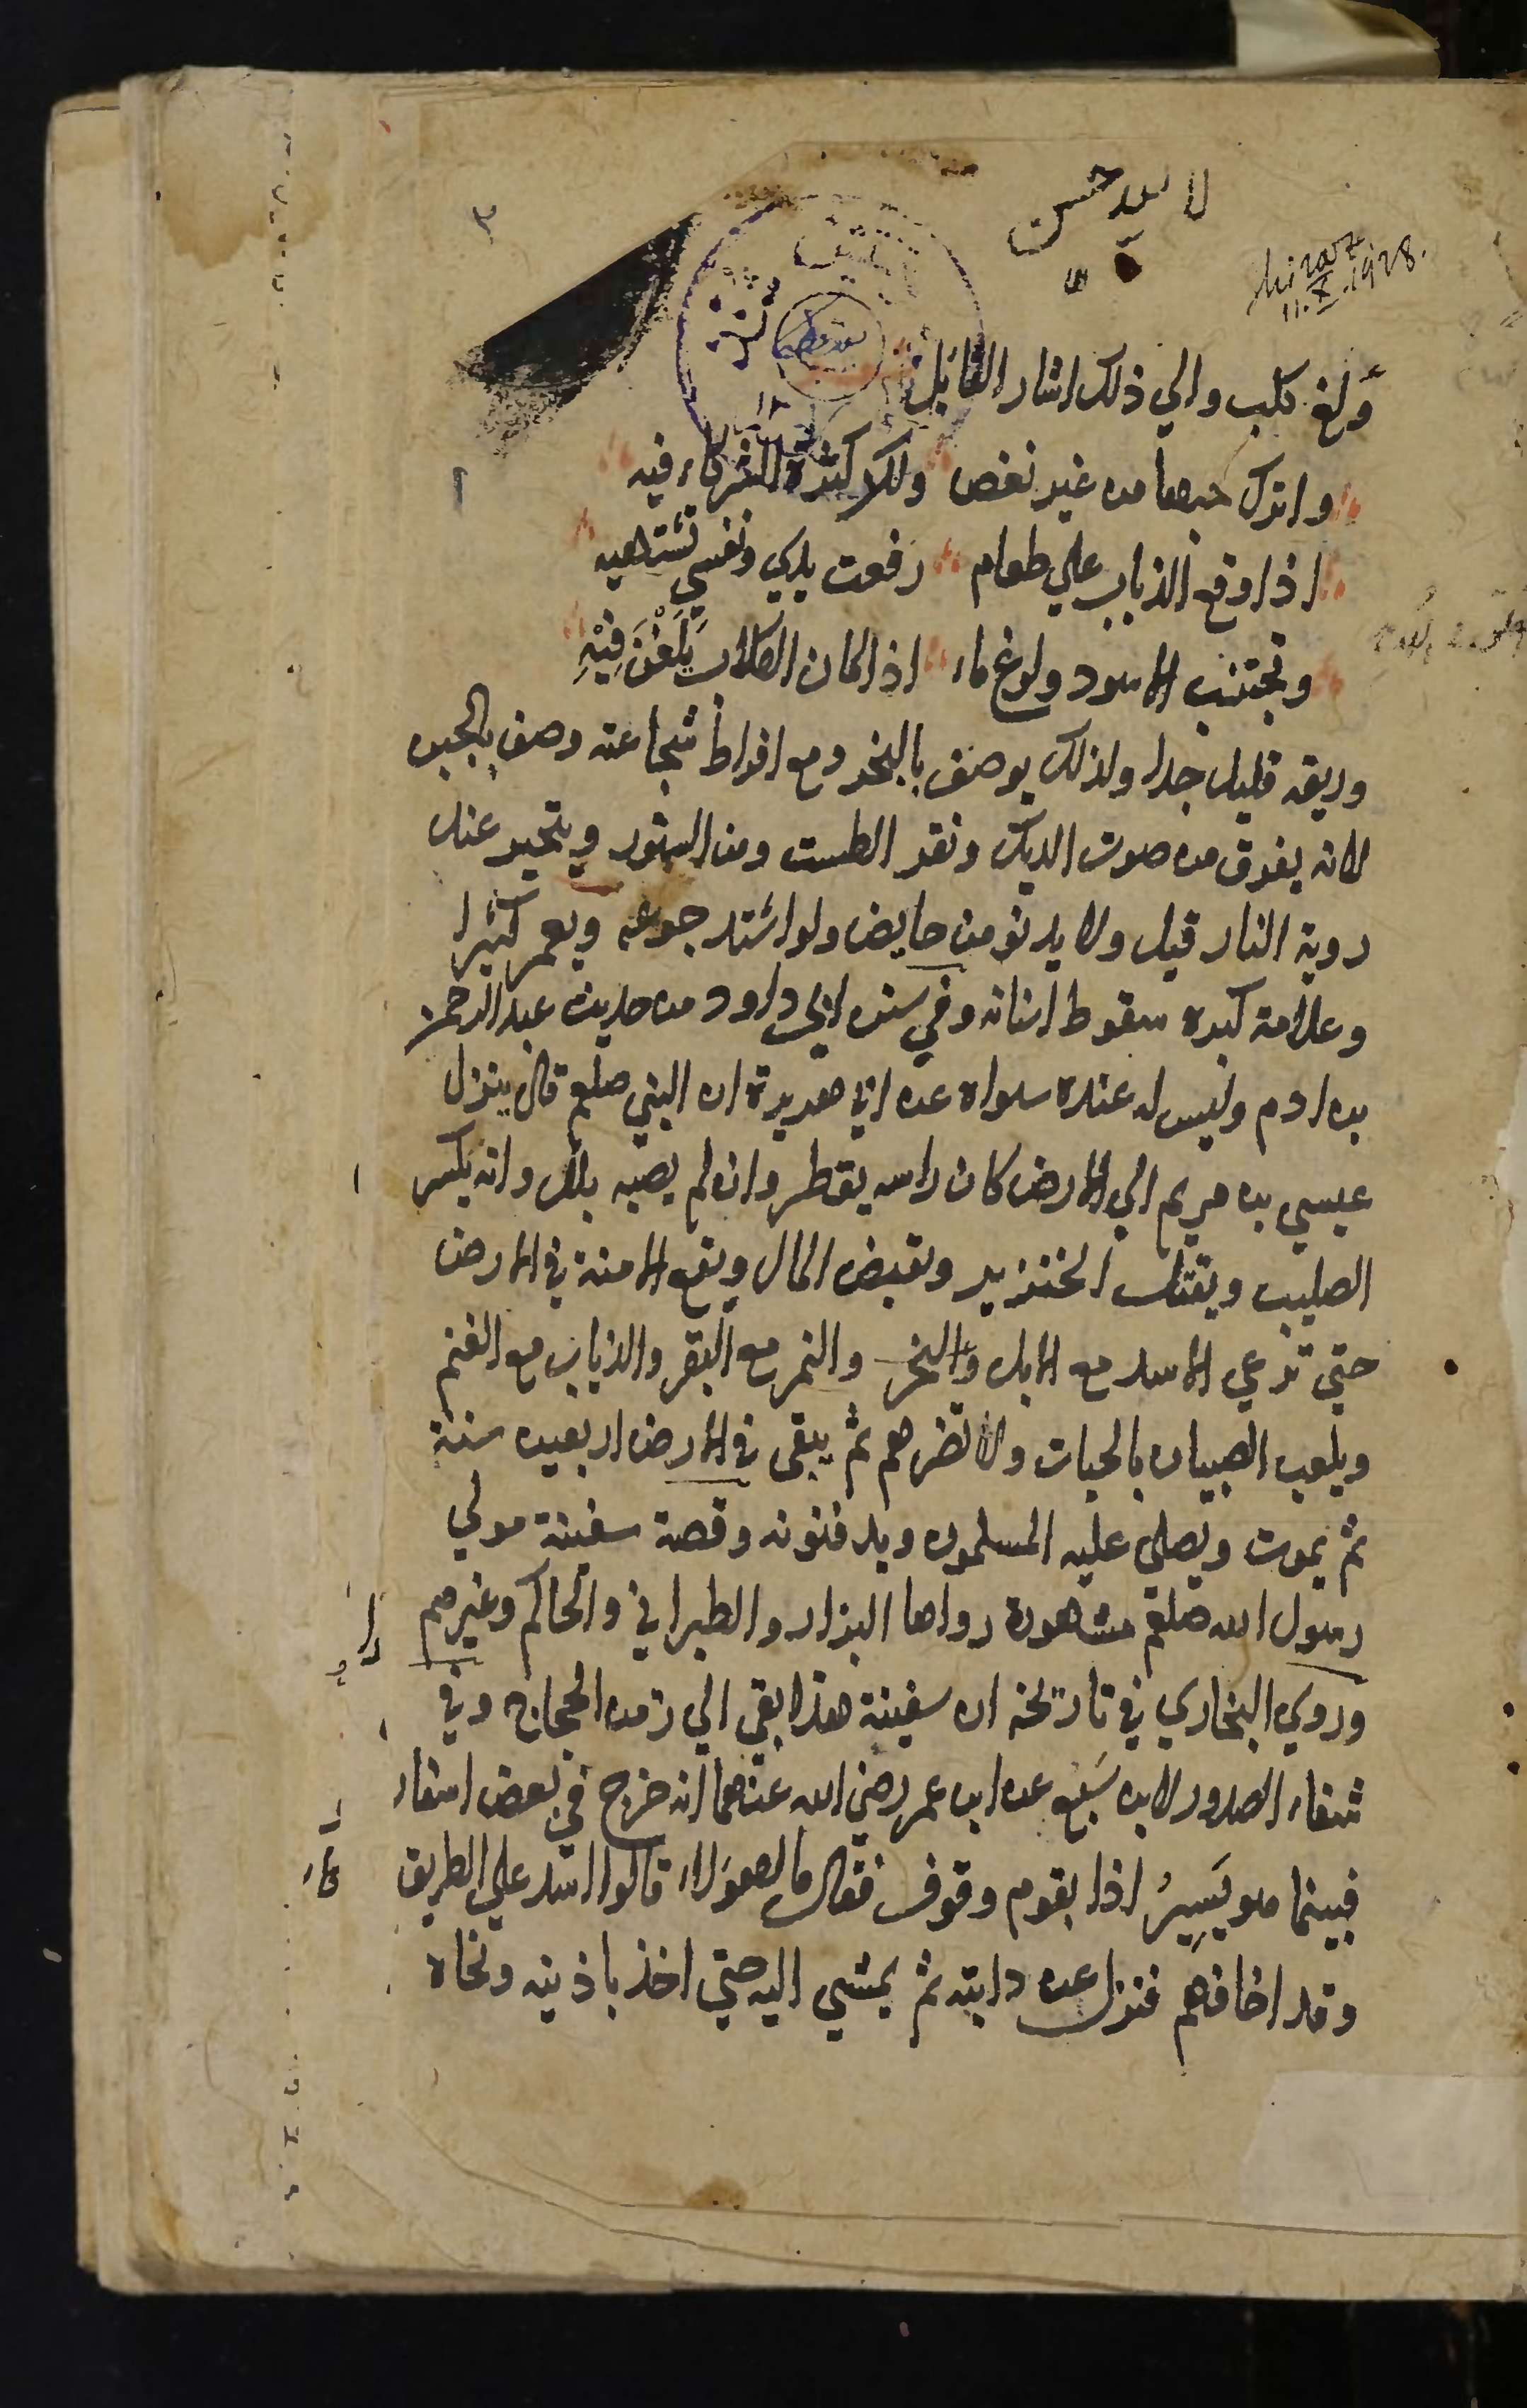 ٣
Shiraz
11.X.1928.
وَلغ كلب والي ذلك اشار القايل
واترك حبها من غير نغص ولكن كثرة الشركاء فيه
اذا وقع الذباب علي طعام رفعت يدي ونفسي تشتهيه
وتجتنب الاسود ولوغ ماء اذا كان الكلاب يَلَغْنَ فِيْهِ
وريقه قليل جدا ولذلك يوصف بالبخر ومع افراط شجاعته وصف بالجبن
لانه يفرق من صوت الديك ونقر الطست ومن السنور ويتحير عند
روية النار قيل ولا يدنو من حايض ولو اشتد جوعه ويعمر كثيرا
وعلامة كبره سقوط اسنانه وفي سنن ابي داود من حديث عبد الرحمن
بن ادم وليس له عنده سواه عن ابي هريرة ان النبي صلعم قال ينزل
عيسي بن مريم الي الارض كان راسه يقطر وان لم يصبه بلل وانه يكسر
الصليب ويقتل الخنزير ويقبض المال ويقع الامنة في الارض
حتي ترعي الاسد مع الابل والنمر مع البقر والذياب مع الغنم
ويلعب الصبيان بالحيات ولا تضرهم ثم يبقى في الارض اربعين سنة
ثم يموت ويصلى عليه المسلمون ويدفنونه وقصة سفينة مولي
رسول الله صلعم مشهورة رواها البزار والطبراني والحاكم وغيرهم
وروي البخاري في تاريخه ان سفينة هذا بقي الي زمن الحجاج وفي
شفاء الصدور لابن سَبُع عن ابن عمر رضي الله عنهما انه خرج في بعض اسفاره
فبينما هو يَسِيرُ اذا بقوم وقوف فقال ما لهؤلاء قالوا اسد علي الطريق
وقد اخافهم فنزل عن دابته ثم يمشي اليه حتي اخذ باذنيه ونحاه